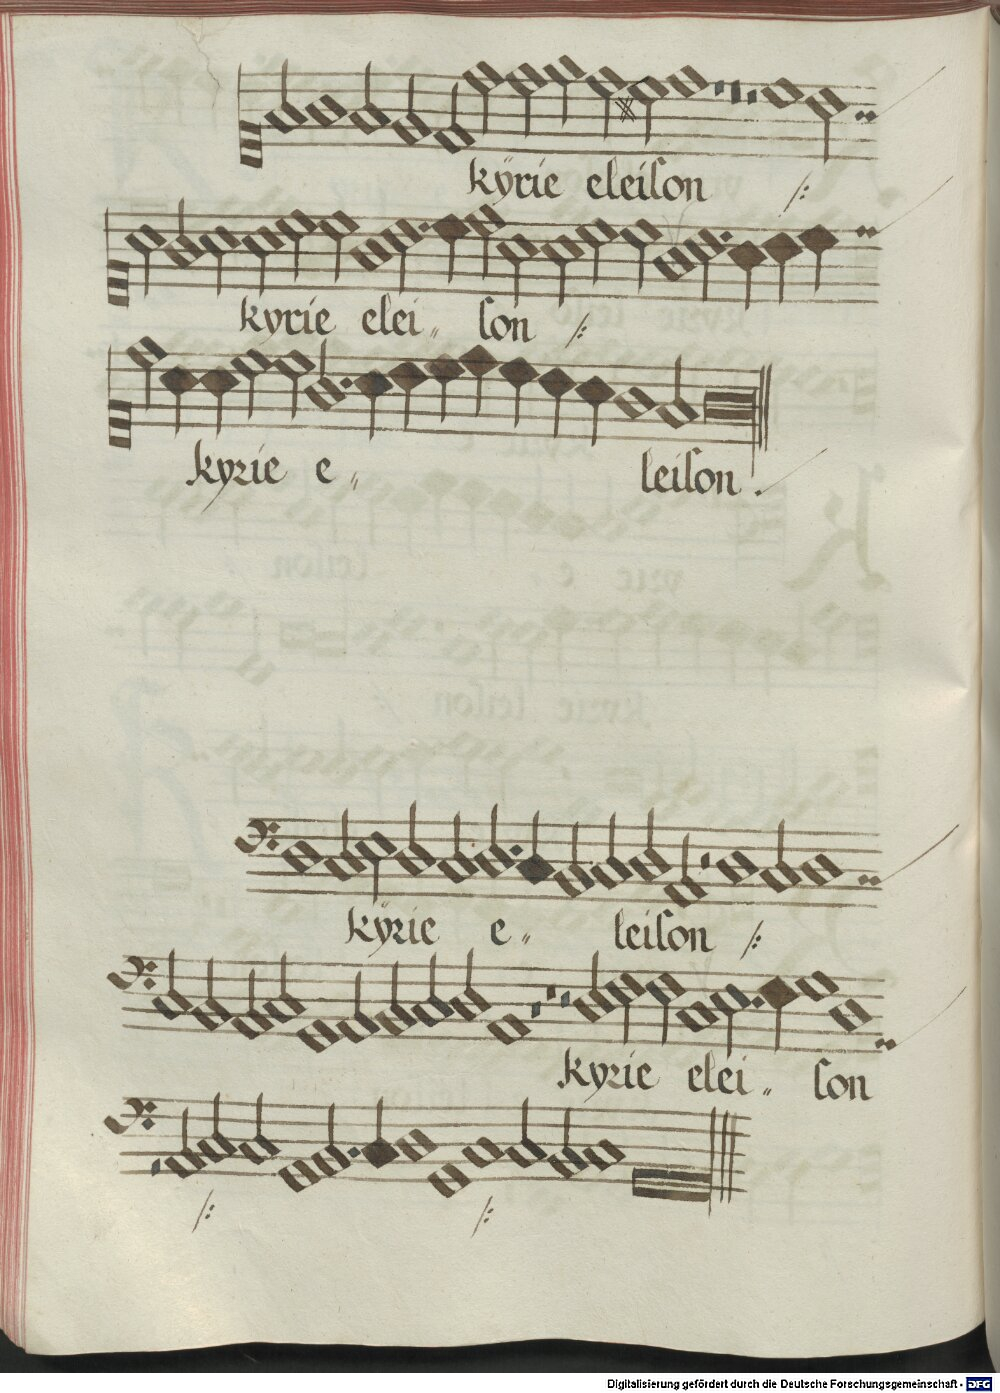 kÿrie eleiſon /:
kyrie elei〃 ſon /:
kyrie e〃 leiſon .
kÿrie e〃 leiſon /:
kyrie elei〃 ſon
/: /:
Digitalisierung gefördert durch die Deutsche Forschungsgemeinschaft - DFG